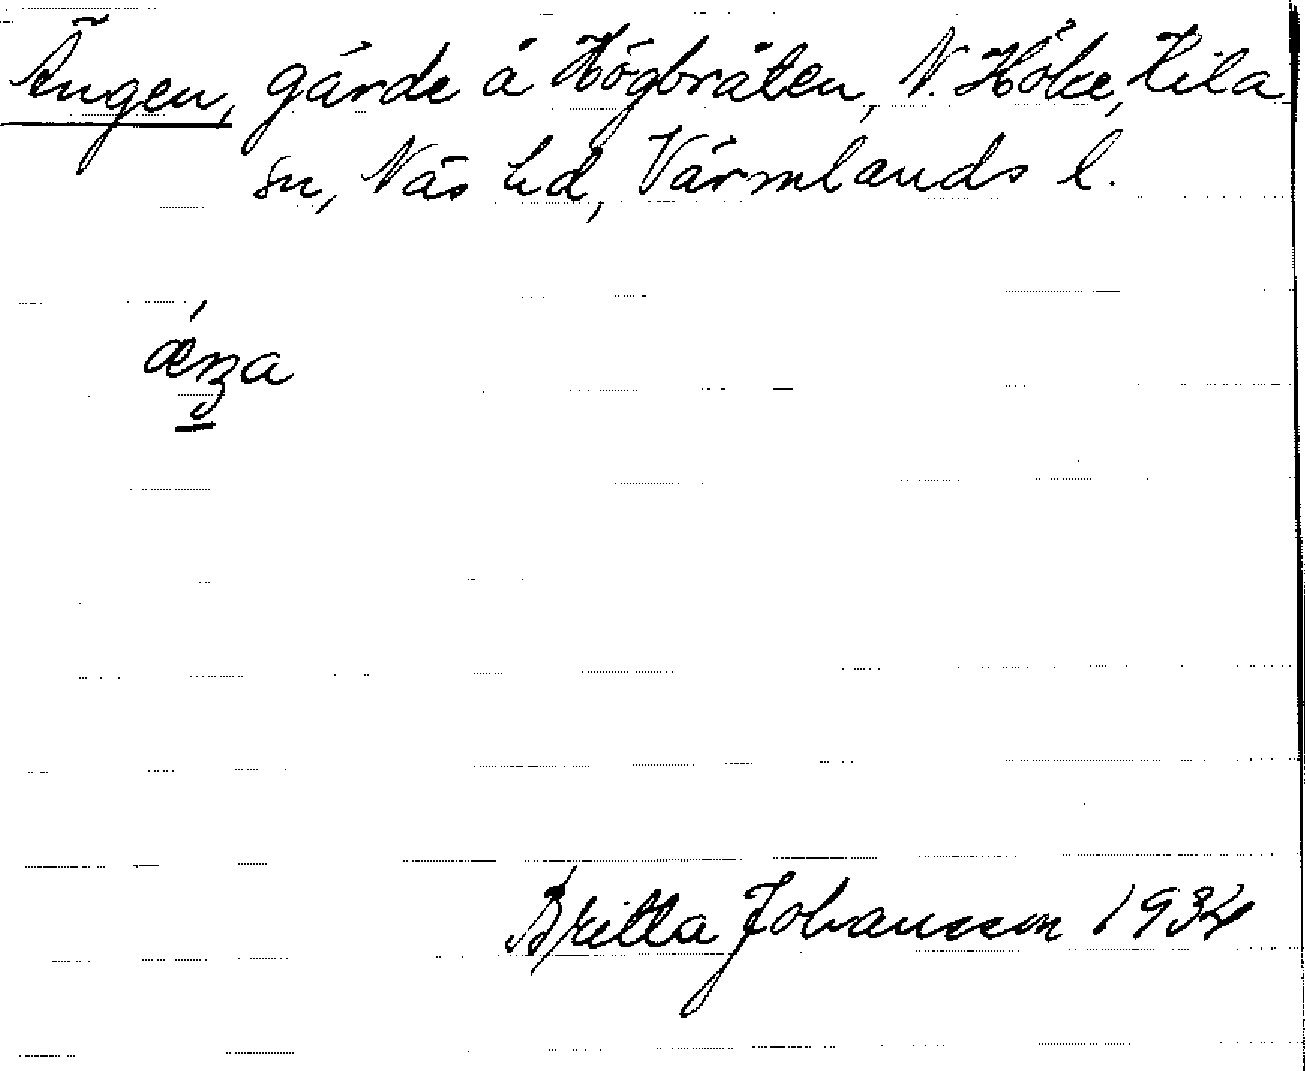 Ängen, gärde å Högbråten, N. Höke, Kila
sn, Näs hd, Värmlands l.
ǽŋa
Britta Johansson 1934